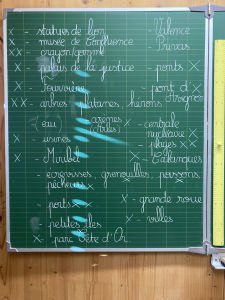 X - statues de lyon - Valence
X - musée de Confluence - Privas
XX - crayon/gomme
X - palais de la justice - ponts X
X - Fourvière - pont d'Avignon X
XX - arbres : platanes, hérons
- (eau) arènes (Arles) X - centrale nucléaire X
X - usines - plages XX
X - Miribel X - Calanques
- écrevisses, grenouilles, poissons, pêcheurs X
- ports X X - grande roue
- petites îles X - villes
X - parc Tête d'Or